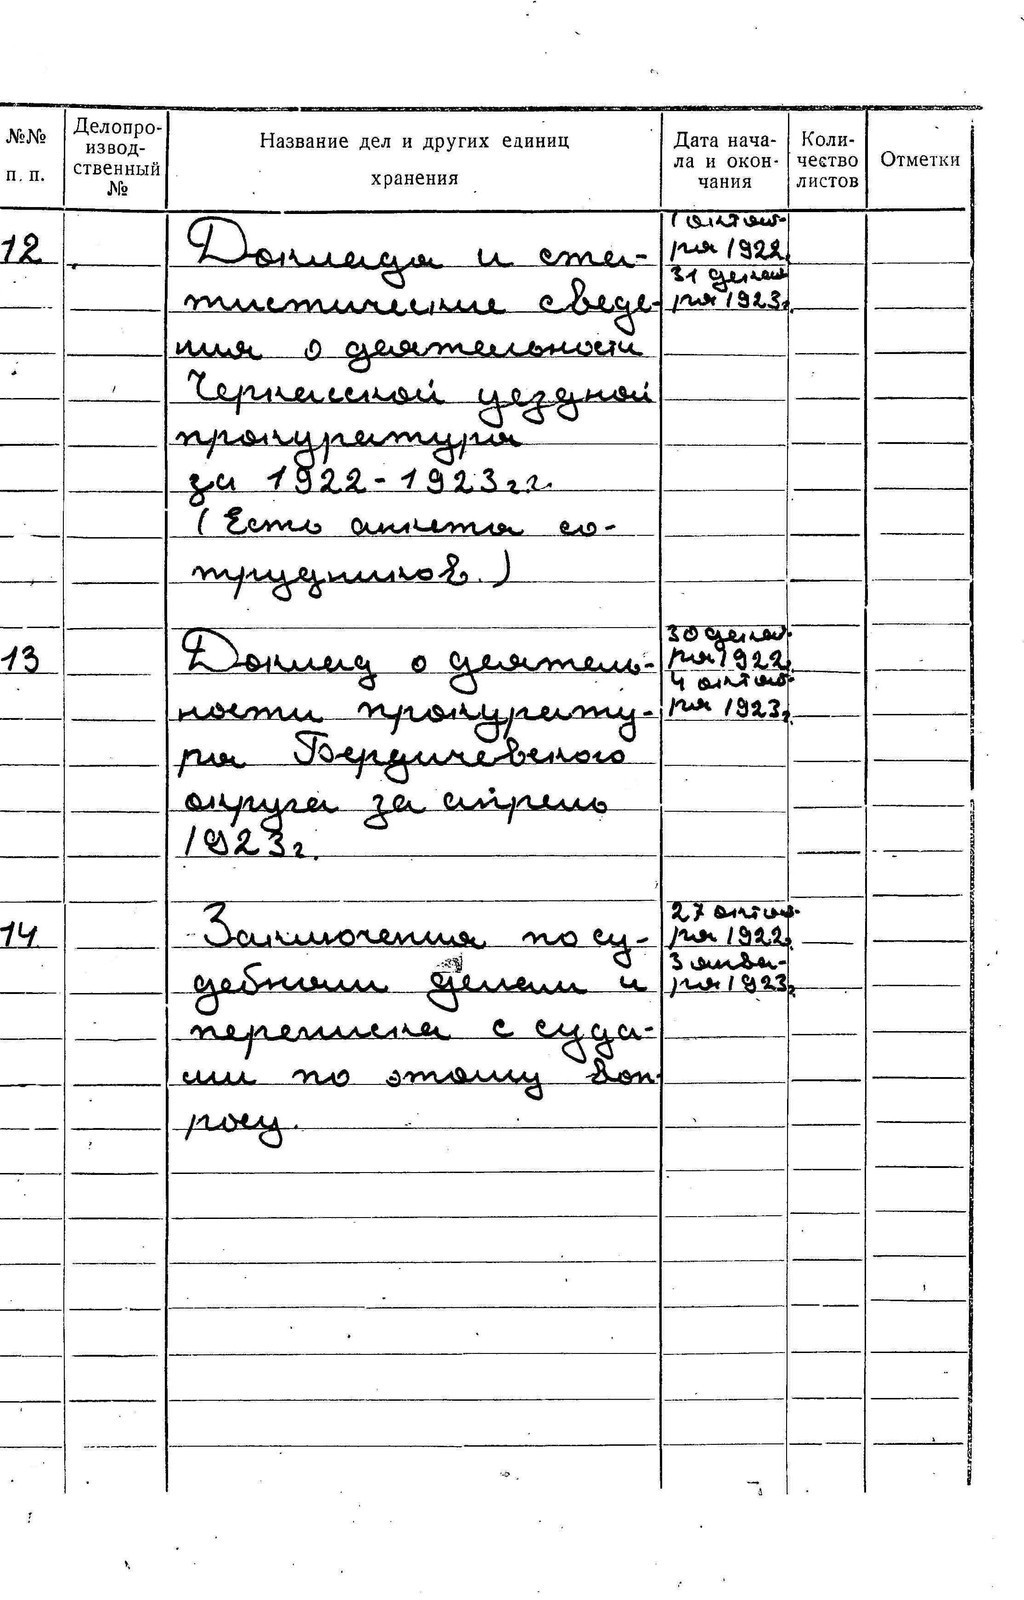 №№ п. п.
Делопро-
извод-
ственный
№
Название дел и других единиц
хранения
Дата нача-
ла и окон-
чания
Коли-
чество
листов
Отметки
12
Доклады и ста-
тистические сведе-
ния о деятельности
Черкасской уездной
прокуратуры
за 1922-1923гг.
(Есть анкеты со-
трудников.)
1 октяб-
ря 1922
31 декаб
ря 1923г
13
Доклад о деятель-
ности прокурату-
ры Бердичевского
округа за апрель
1923г.
30 декаб-
ря 1922
4 октяб-
ря 1923г
14
Заключения по су-
дебным делам и
переписка с суда-
ми по этому воп-
росу.
27 октяб-
ря 1922
3 янва-
ря 1923г